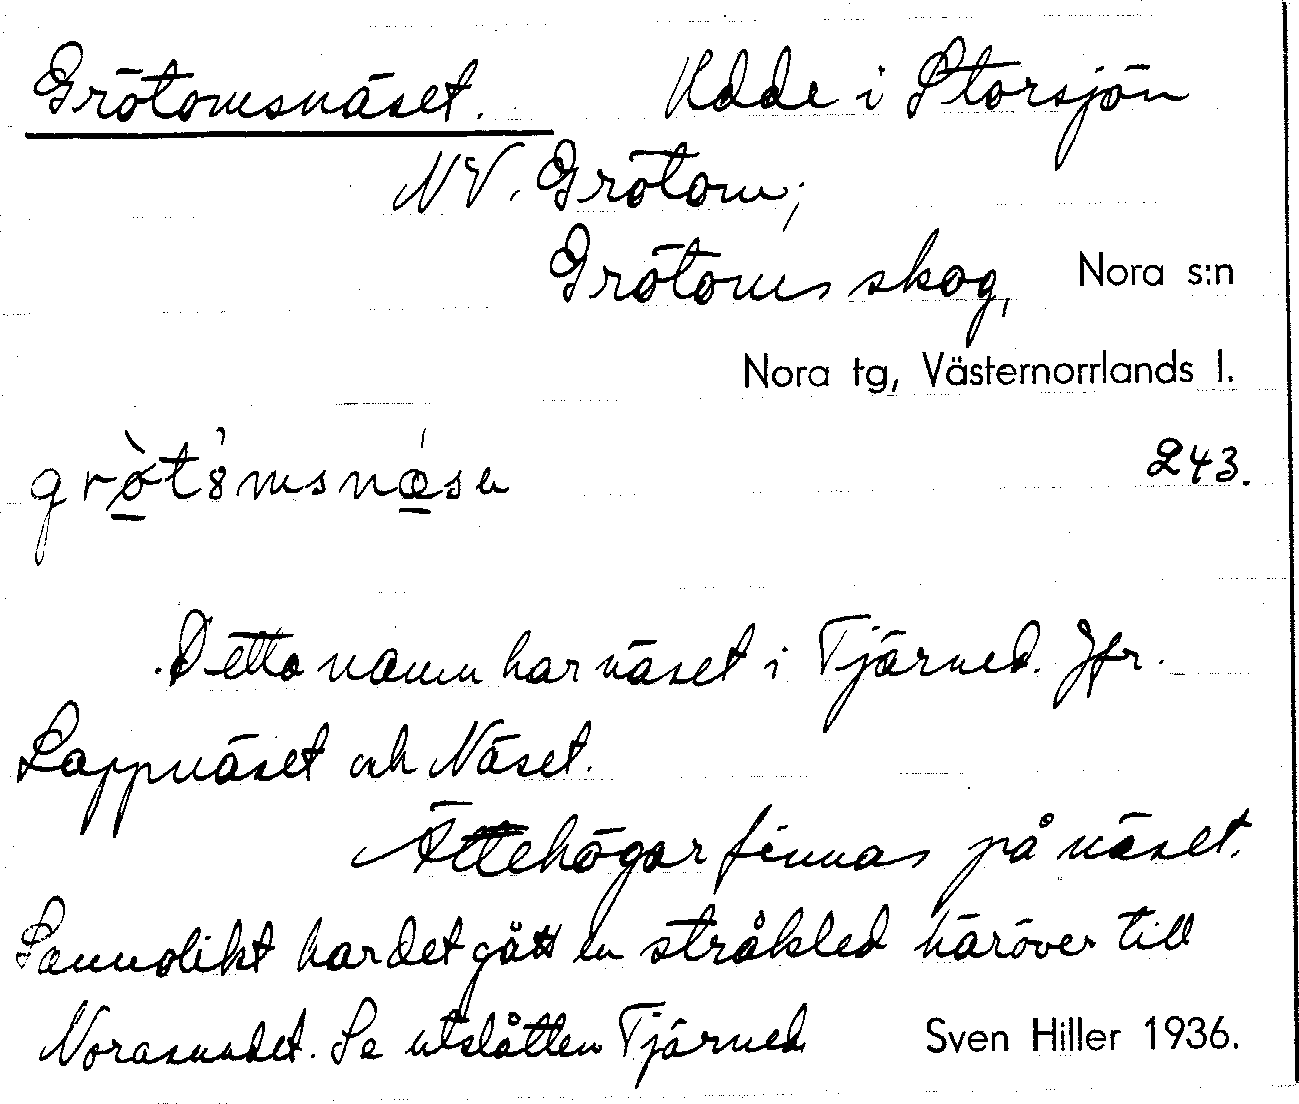 Grötomsnäset. Udde i Storsjön
NV. Grötom;
Grötoms skog, Nora s:n
Nora tg, Västernorrlands l.
243.
Detta namn har näset i Tjärned. Jfr.
Lappnäset och Näset.
Ättehögar finnas på näset.
Sannolikt har det gått en stråkled häröver till
Norasundet. Se utslåtten Tjärned
Sven Hiller 1936.